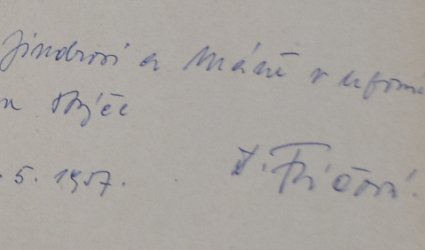 Jindrovi a Máně v upomí
na strýče
. 5. 1957.
F. Fričovi.